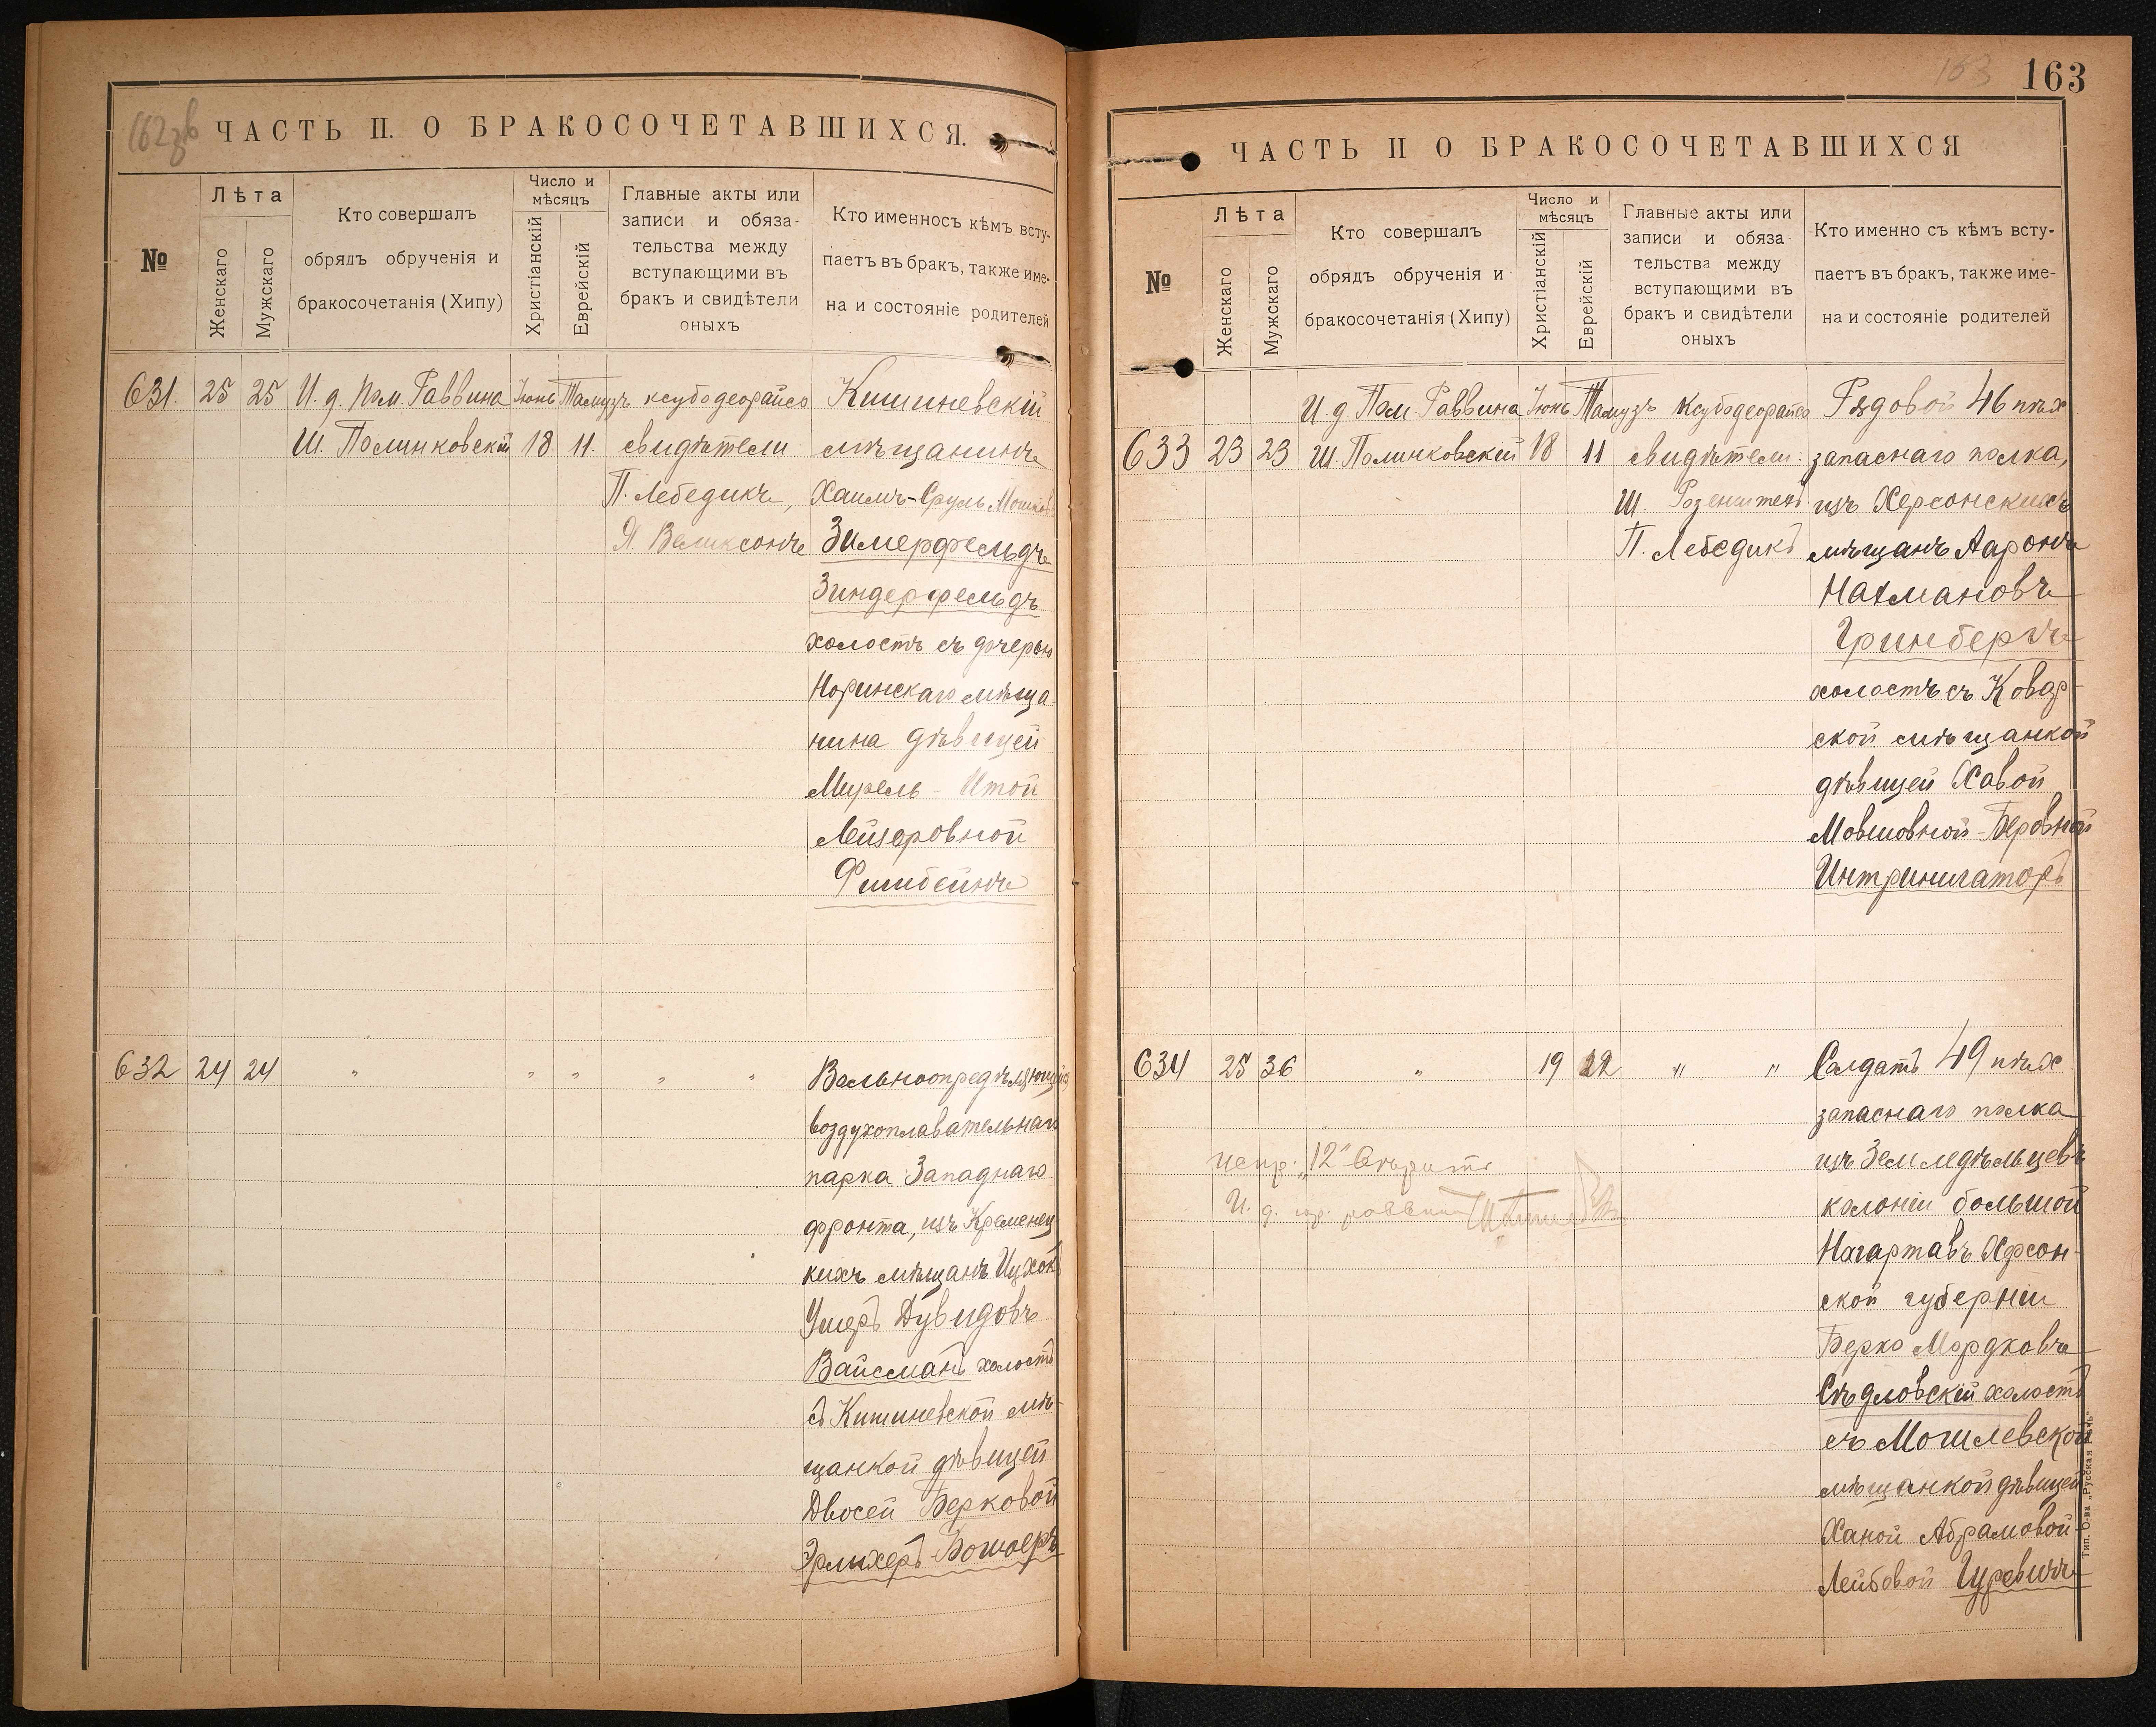 162зв
ЧАСТЬ II. О БРАКОСОЧЕТАВШИХСЯ.
№
Лѣта
Женскаго
Мужскаго
Кто совершалъ
обрядъ обрученія и
бракосочетанія (Хипу)
Число и
мѣсяцъ
Христіанскій
Еврейскій
Главные акты или
записи и обяза-
тельства между
вступающими въ
бракъ и свидѣтели
оныхъ
Кто именносъ кѣмъ всту-
паетъ въ бракъ, также име-
на и состояніе родителей
631. 25 25 И. д. Пом. Раввина Іюнь Тамузъ ксубодеорайсо Кишиневскій
Ш. Полинковскій 18 11. свидѣтели мѣщанинъ
П. Лебедикъ, Хаимъ-Сруль Мошков
Я. Великсонъ Зимерфельдъ
Зиндерфельдъ
холостъ съ дочерью
Норинскаго мѣща
нина дѣвицей
Мирель - Итой
Лейзеровной
Фишбейнъ
632 24 24 " " " " " Вольноопредѣляющійся
воздухоплавательнаго
парка Западнаго
фронта, изъ Кременец
кихъ мѣщанъ Ицхокъ
Ушеръ Дувидовъ
Вайсманъ холостъ
съ Кишиневской мѣ-
щанкой дѣвицей
Двосей Берковой
Эрлихеръ-Бошоеръ
163 163
ЧАСТЬ II О БРАКОСОЧЕТАВШИХСЯ
№
Лѣта
Женскаго
Мужскаго
Кто совершалъ
обрядъ обрученія и
бракосочетанія (Хипу)
Число и
мѣсяцъ
Христіанскій
Еврейскій
Главные акты или
записи и обяза
тельства между
вступающими въ
бракъ и свидѣтели
оныхъ
Кто именно съ кѣмъ всту-
паетъ въ бракъ, также име-
на и состояніе родителей
И. д Пом Раввина Іюнь Тамузъ Ксубодеорайсо Рядовой 46 пѣх
633 23 23 Ш Полинковскій 18 11 свидѣтели: запаснаго полка,
Ш. Розенштейнъ изъ Херсонскихъ
П. Лебедикъ мѣщанъ Ааронъ
Нахмановъ
Гринбергъ
холостъ съ Ковар-
ской мѣщанкой
дѣвицей Хавой
Мовшовной-Беровной
Интрилигаторъ
634 25 36 " 19 12 " " Солдатъ 49 пѣх
запаснаго полка
испр. „12" вѣрить изъ Земледѣльцевъ
И. д. раввина колоніи большой
Нагартавъ Херсон-
ской губерніи
Берко Мордковъ
Сѣдловскій холостъ
съ Могилевской
мѣщанкой дѣвицей
Ханой Абрамовой-
Лейбовой Гуревичъ
Тип. О-ва „Русская Рѣчь"